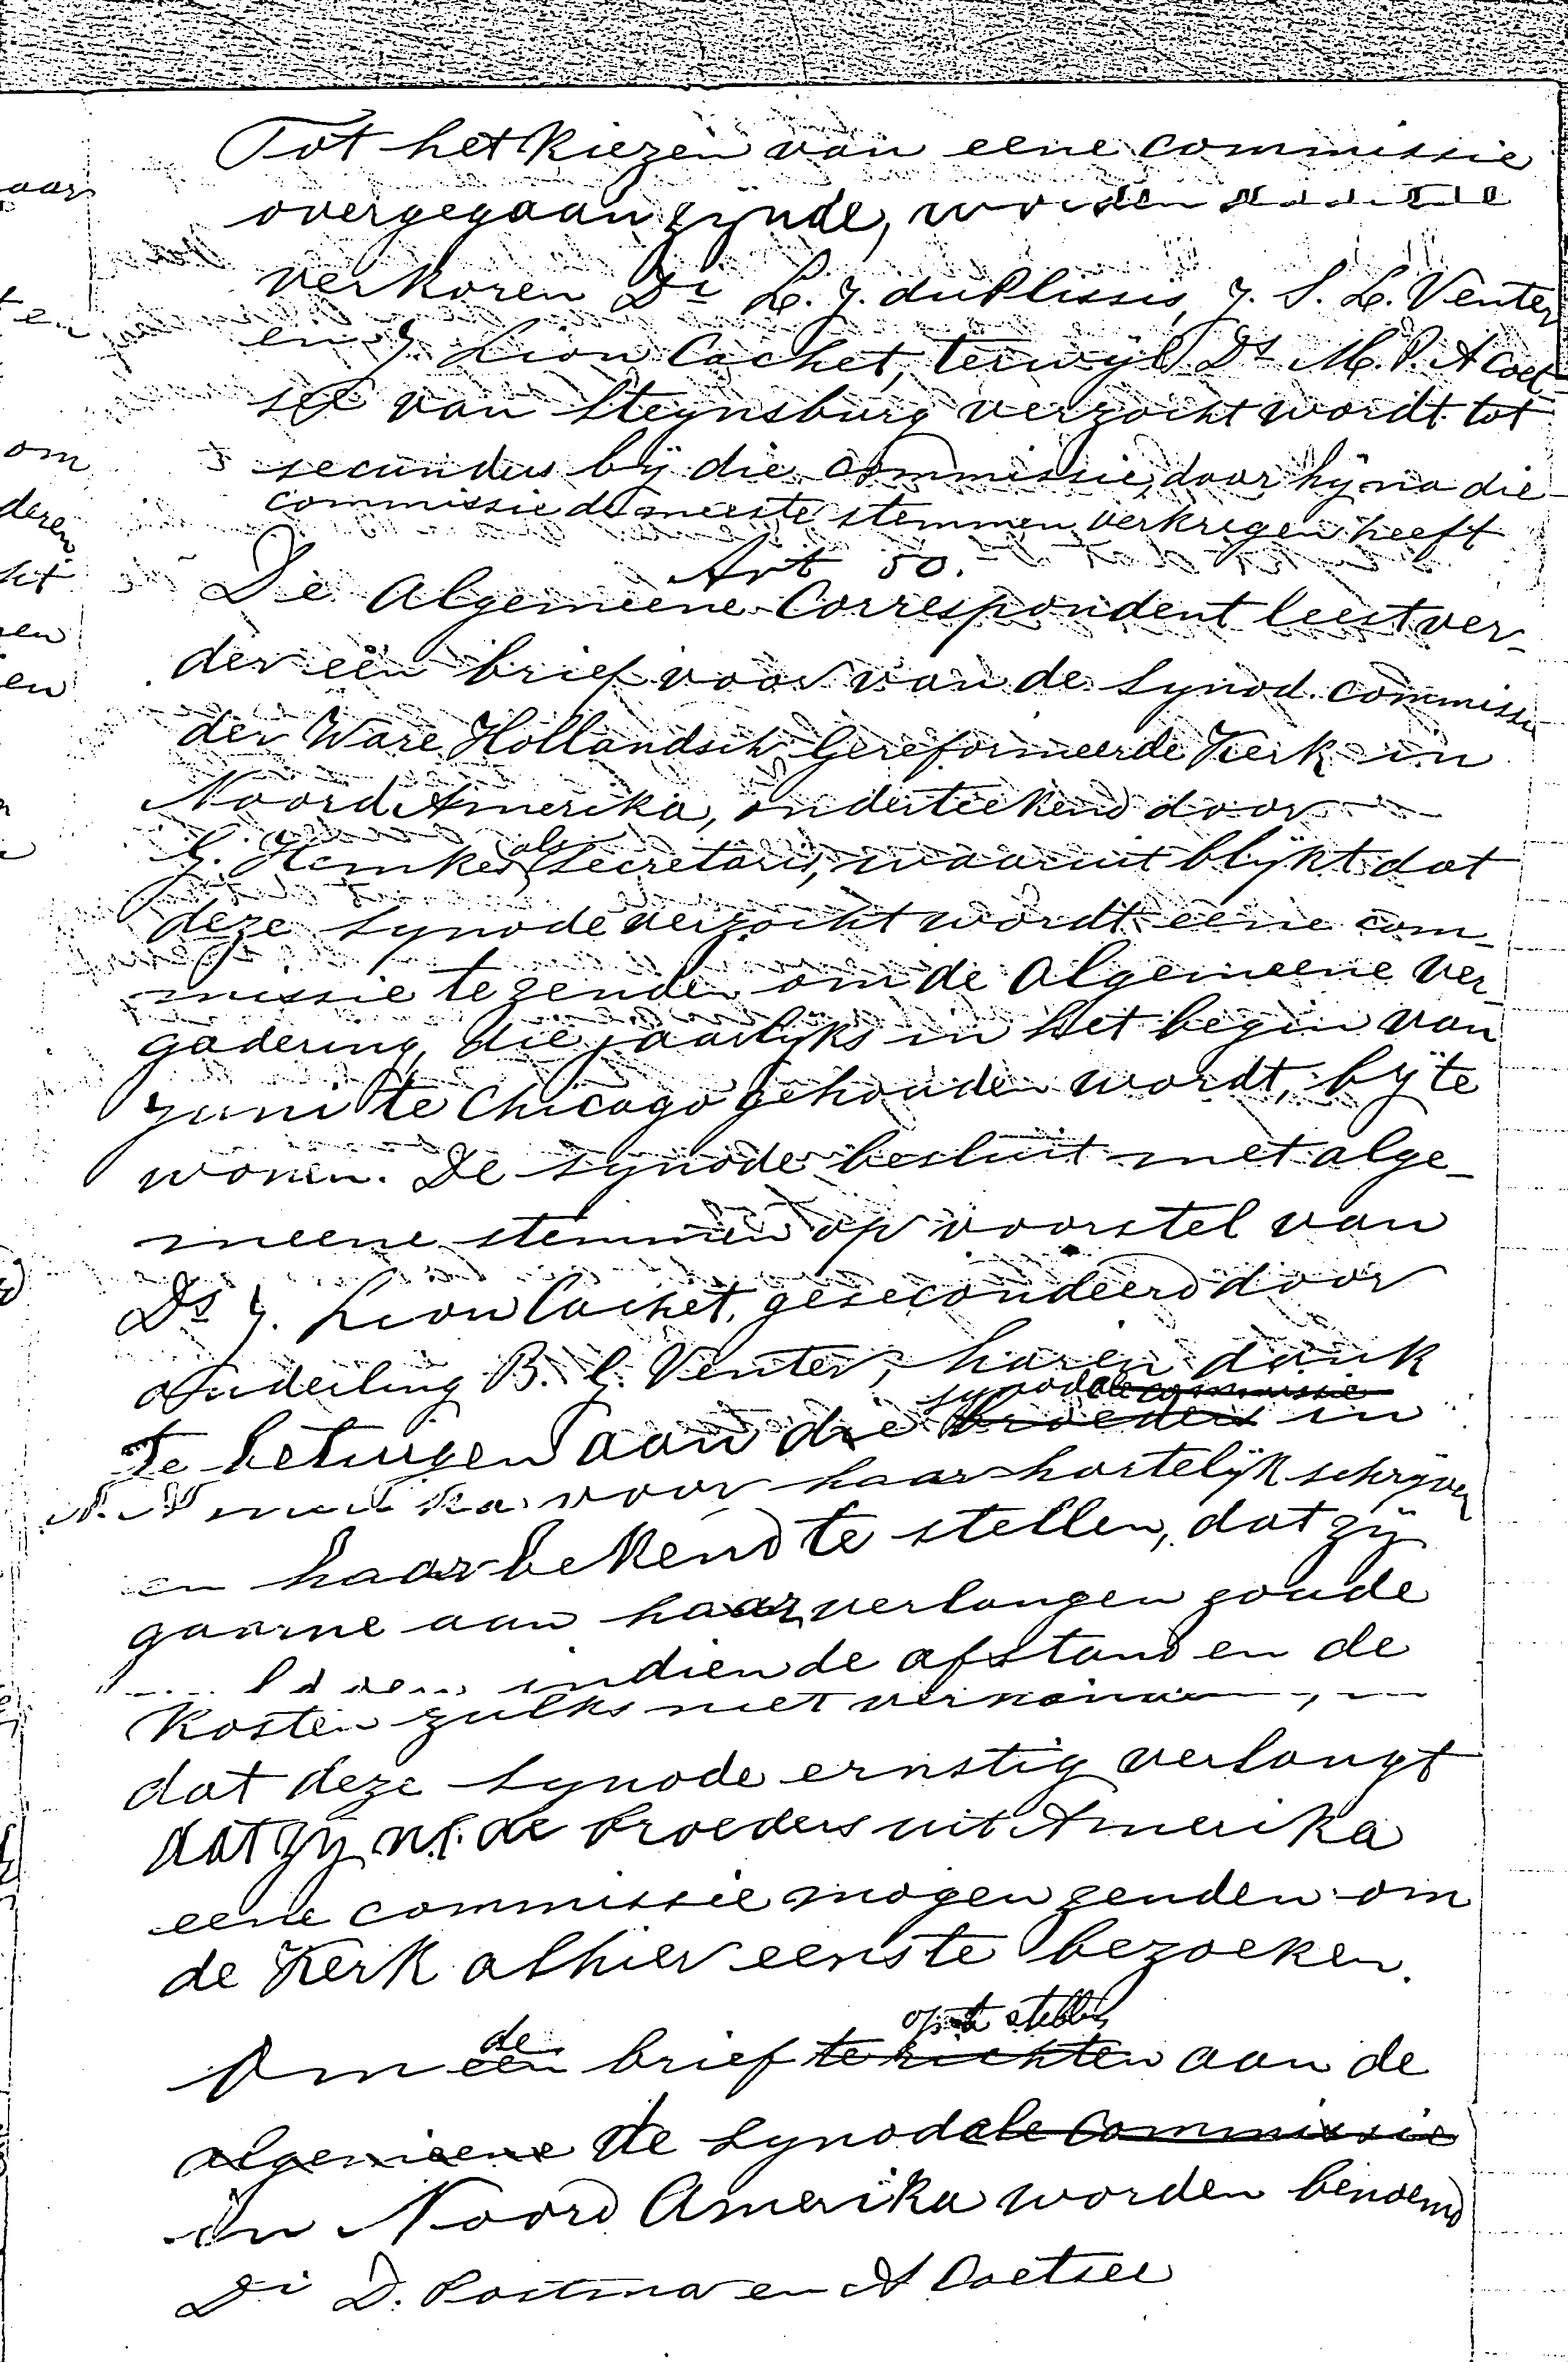 Tot het kiezen van eene commissie
overgegaan zijnde, worden
verkoren Di L. J. du Plessis, J. S. L. Venter
en J. Lion Cachet, terwijl Ds M. P. A Coet-
see van Steynsburg verzocht wordt tot
secundus bij die commissie, daar hij na die
commissie de meeste stemmen verkregen heeft
Art 50.
De Algemeene Correspondent leest ver-
der een brief voor van de Synod. commissie
der Ware Hollandsch Gereformeerde Kerk in
Noord Amerika, onderteekend door
G. Hemkes als Secretaris, waaruit blijkt dat
deze Synode verzocht wordt eene com-
missie te zenden om de Algemeene Ver-
gadering, die jaarlijks in het begin van
Juni te Chicago gehouden wordt, bij te
wonen. De Synode besluit met alge-
meene stemmen op voorstel van
Ds J. Lion Cachet, gesecondeerd door
Ouderling B. J. Venter, haren dank
synodale commissie
te betuigen aan die broeders in
N. Amerika voor haar hartelijk schrijven
en haar bekend te stellen, dat zij
gaarne aan haar verlangen zoude
indien de afstand en de
kosten zulks niet
dat deze Synode ernstig verlangt
dat zij nl. de broeders uit Amerika
eene commissie mogen zenden om
de Kerk alhier eens te bezoeken.
de op te stellen
Om een brief te richten aan de
algemeene de Synodale Commissie
in Noord Amerika worden benoemd
Di D. Postma en A Coetsee